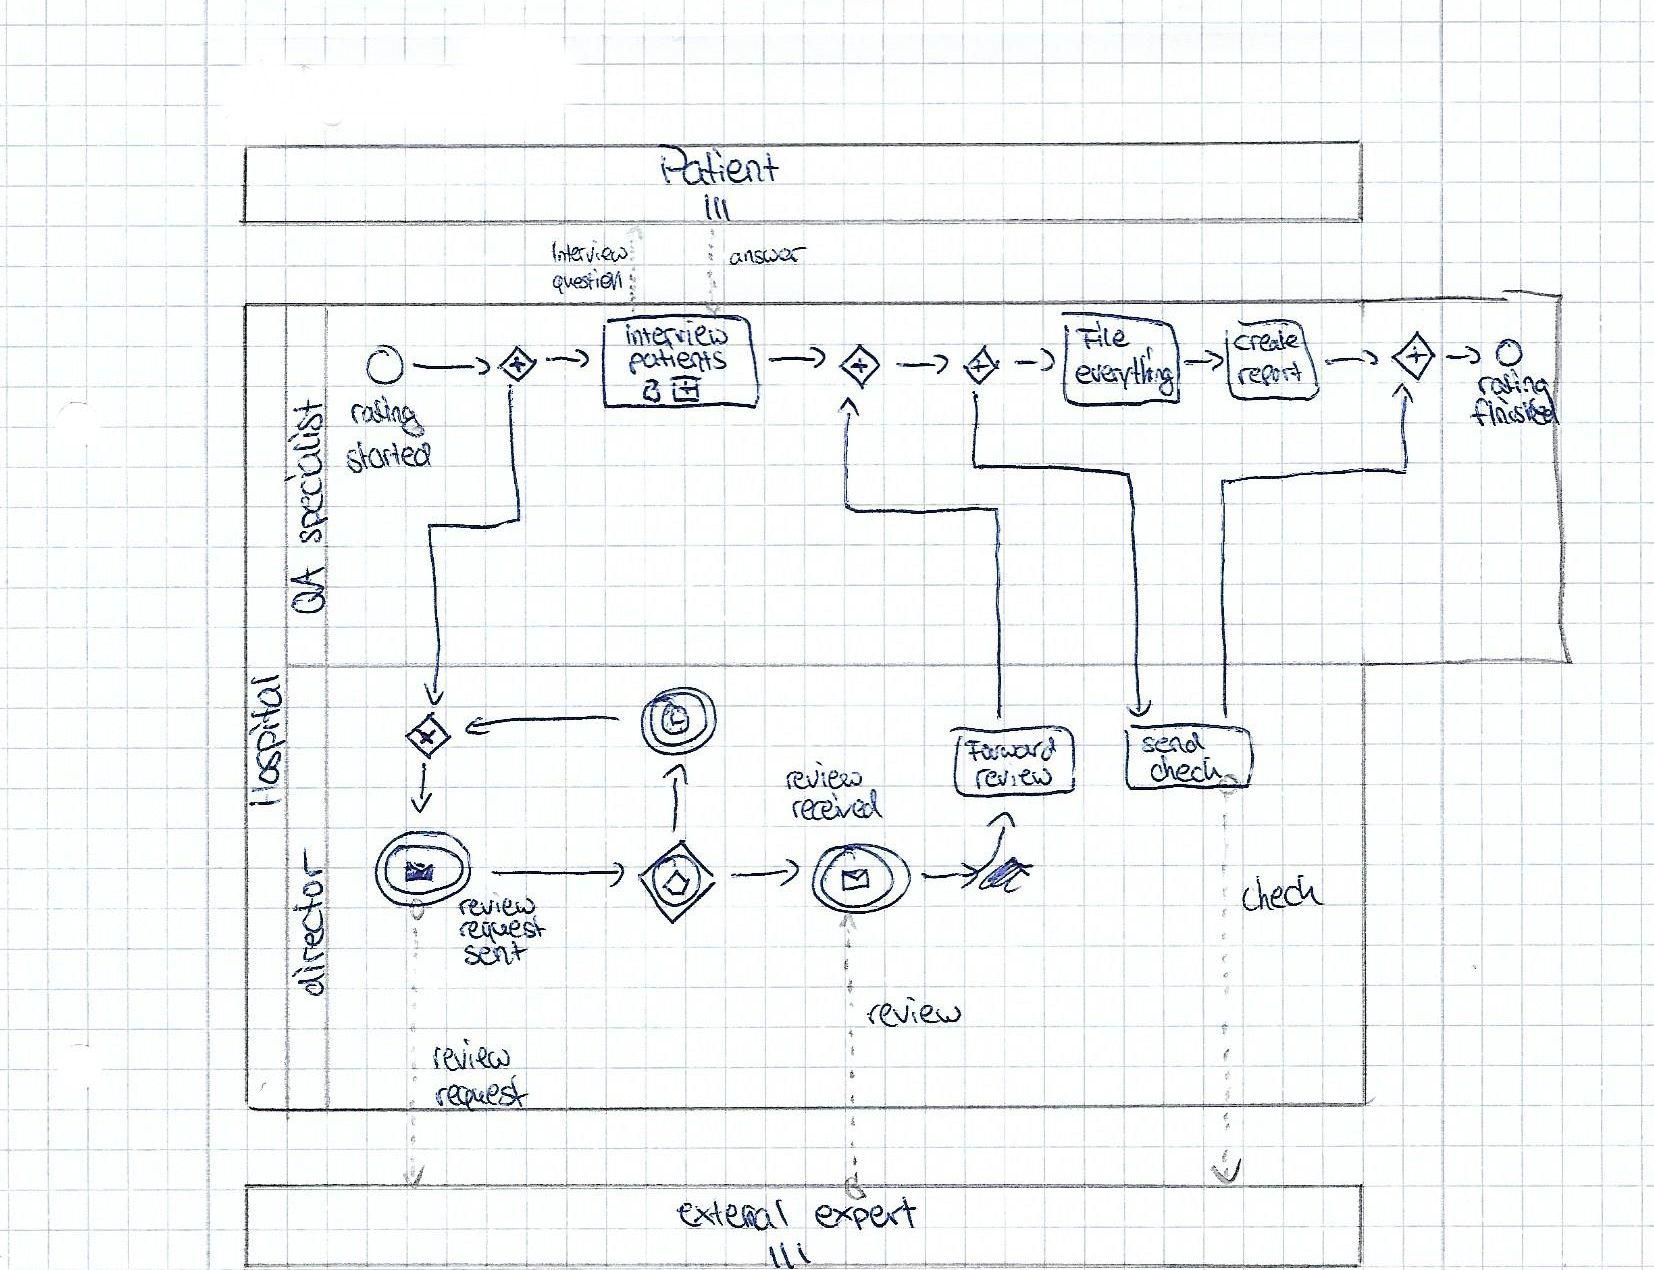 Patient
Interview
question
answer
Hospital
QA specialist
rating
started
interview
patients
File
everything
create
report
rating
director
review
request
sent
review
received
Forward
review
send
check
check
review
review
request
external expert